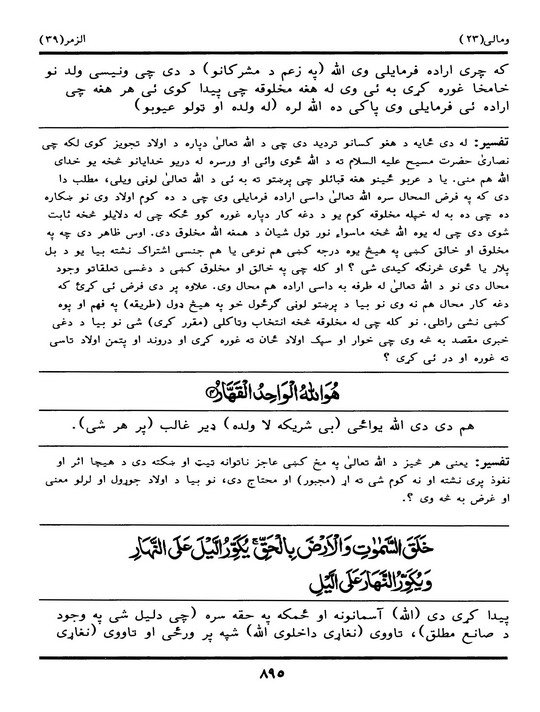 ومالی(۲۳)
الزمر(۳۹)
که چری اراده فرمایلی وی الله (په زعم د مشرکانو) د دی چی ونیسی ولد نو
خامخا غوره کړی به ئی وی له هغه مخلوقه چی پیدا کوی ئی هر هغه چی
اراده ئی فرمایلی وی پاکی ده الله لره (له ولده او ټولو عیوبو)
تفسیر: له دی ځایه د هغو کسانو تردید دی چی د الله تعالیٰ دپاره د اولاد تجویز کوی لکه چی
نصاریٰ حضرت مسیح علیه السلام ته د الله ځوی وائی او ورسره له دریو خدایانو څخه یو خدای
الله هم منی. یا د عربو ځینو هغه قبائلو چی پرښتو ته به ئی د الله تعالیٰ لوڼی ویلی، مطلب دا
دی که په فرض المحال سره الله تعالیٰ داسی اراده فرمایلی وی چی د ده کوم اولاد وی نو ښکاره
ده چی ده به له خپله مخلوقه کوم یو د دغه کار دپاره غوره کوو ځکه چی له دلایلو څخه ثابت
شوی دی چی له یوه الله څخه ماسواء نور ټول شیان د همغه الله مخلوق دی. اوس ظاهر دی چه په
مخلوق او خالق کښی په هیڅ یوه درجه کښی هم نوعی یا هم جنسی اشتراک نشته بیا یو د بل
پلار یا ځوی څرنگه کیدی شی ؟ او کله چی په خالق او مخلوق کښی د دغسی تعلقاتو وجود
محال دی نو د الله تعالیٰ له طرفه به داسی اراده هم محال وی. علاوه پر دی فرض ئی کړئ که
دغه کار محال هم نه وی نو بیا د پرښتو لوڼی گرځول خو په هیڅ ډول (طریقه) په فهم او پوه
کښی نشی راتلی. نو کله چی له مخلوقه څخه انتخاب وټاکلی (مقرر کړی) شی نو بیا د دغی
خبری مقصد به څه وی چی خوار او سپک اولاد ځان ته غوره کړی او دروند او پتمن اولاد تاسی
ته غوره او در ئی کړی ؟
هُوَ اللّٰهُ الْوَاحِدُ الْقَهَّارُ﴿۴﴾
هم دی دی الله یواځی (بی شریکه لا ولده) ډیر غالب (پر هر شی).
تفسیر: یعنی هر څیز د الله تعالیٰ په مخ کښی عاجز ناتوانه ټیټ او ښکته دی د هیچا اثر او
نفوذ پری نشته او نه کوم شی ته اړ (مجبور) او محتاج دی، نو بیا د اولاد جوړول او لرلو معنی
او غرض به څه وی ؟.
خَلَقَ السَّمٰوٰتِ وَالْاَرْضَ بِالْحَقِّ ۚ يُكَوِّرُ الَّيْلَ عَلَى النَّهَارِ
وَيُكَوِّرُ النَّهَارَ عَلَى الَّيْلِ
پیدا کړی دی (الله) آسمانونه او ځمکه په حقه سره (چی دلیل شی په وجود
د صانع مطلق)، تاووی (نغاړی داخلوی الله) شپه پر ورځی او تاووی (نغاړی
۸۹۵